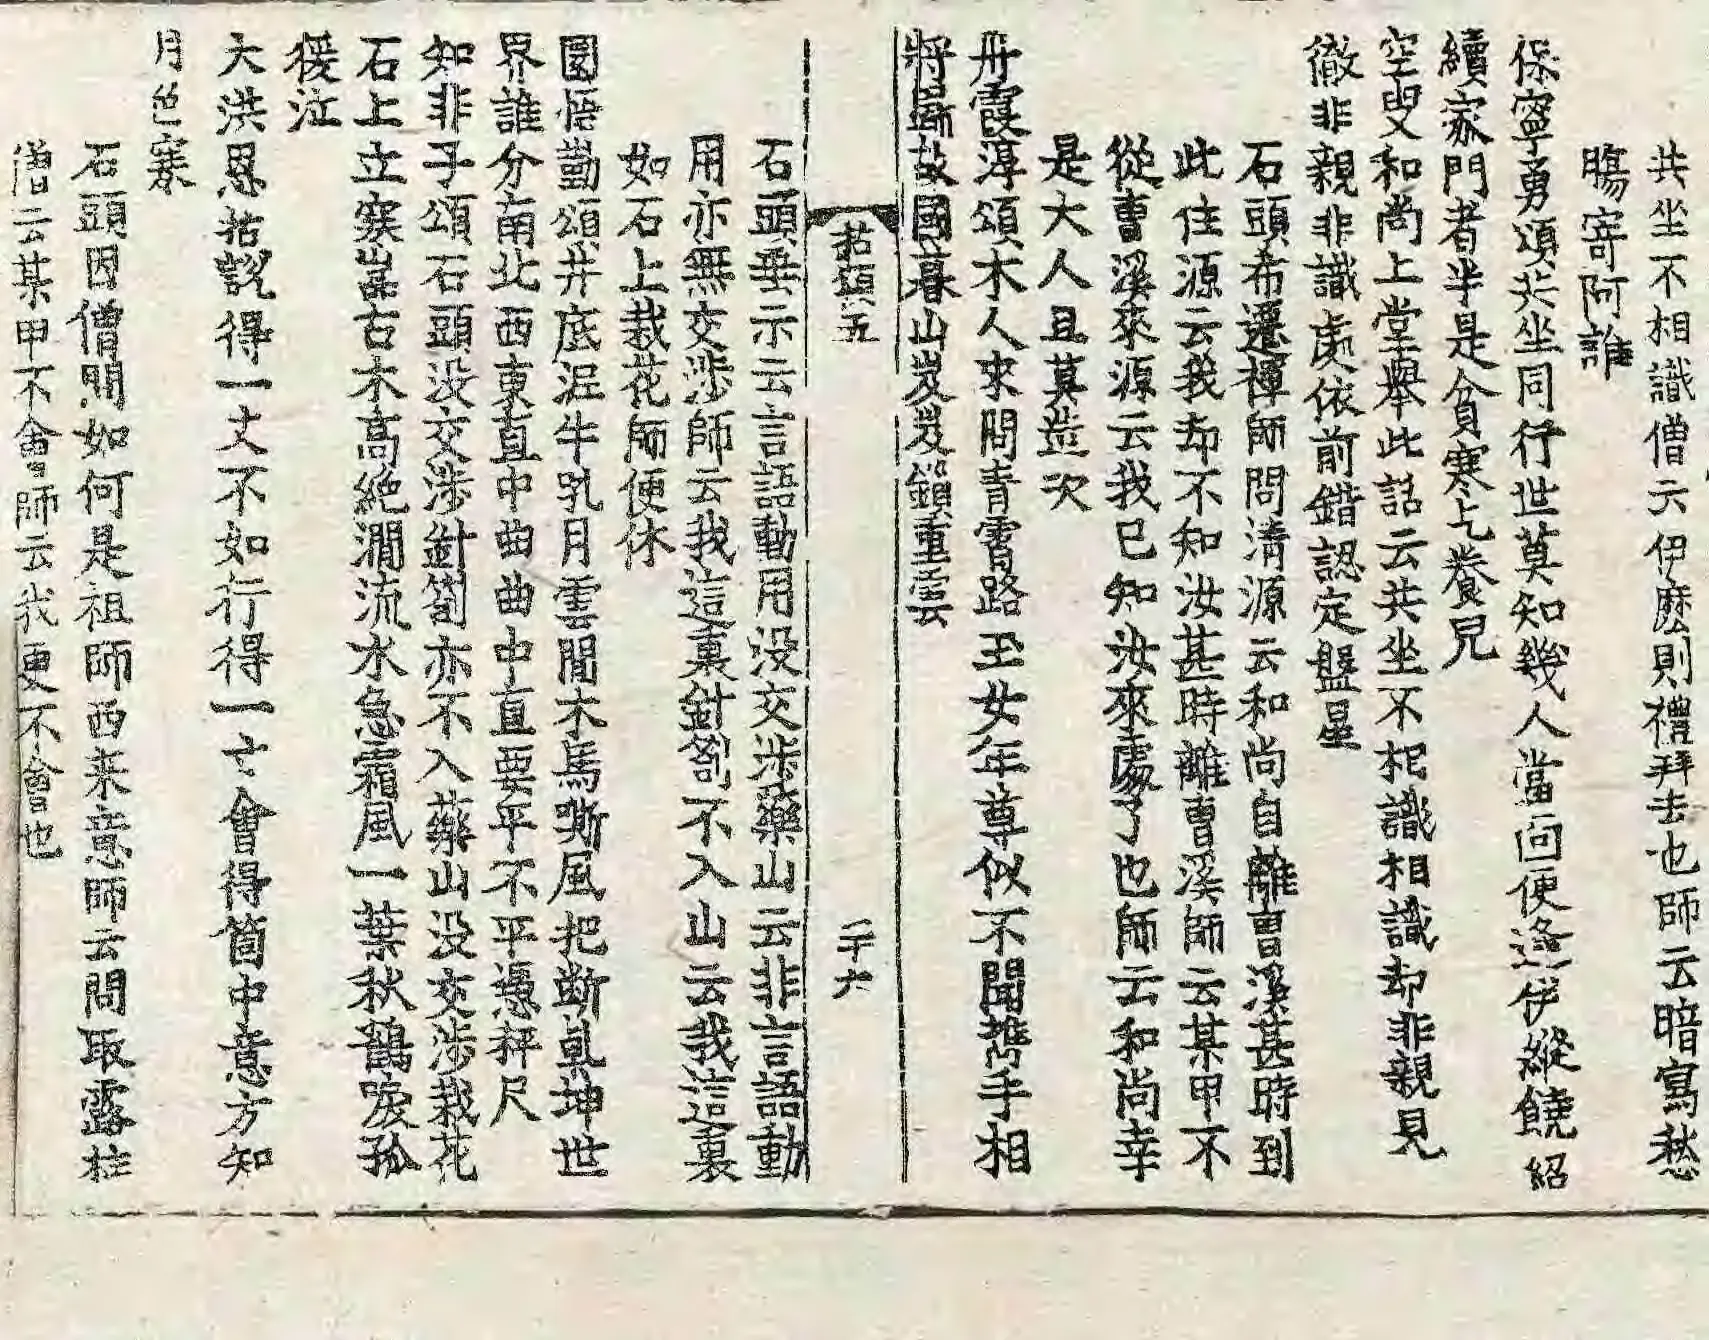 共坐不相識僧云伊麽則禮拜去也師云暗寫愁
腸寄阿誰
保寧勇頌共坐同行世莫知幾人當面便逢伊縱饒紹
續家門者半是貧寒乞養兒
空叟和尚上堂擧此話云共坐不相識相識却非親見
徹非親非識處依前錯認定盤星
石頭希遷禪師問淸源云和尚自離曹溪甚時到
此住源云我却不知汝甚時離曹溪師云某甲不
從曹溪來源云我已知汝來處了也師云和尚幸
是大人且莫造次
丹霞淳頌木人來問靑霄路玉女年尊似不聞携手相
將歸故國暮山岌岌鎖重雲
拈頌五
二十六
石頭垂示云言語動用没交渉藥山云非言語動
用亦無交渉師云我這裏針劄不入山云我這裏
如石上栽花師便休
圜悟勤頌井底泥牛吼月雲間木馬嘶風把斷乾坤世
界誰分南北西東直中曲曲中直要平不平憑秤尺
知非子頌石頭没交渉針劄亦不入藥山没交渉栽花
石上立寒嵓古木高絶澗流水急霜風一葉秋鶴唳孤
猨泣
大洪恩拈説得一丈不如行得一寸會得箇中意方知
月色寒
石頭因僧問如何是祖師西来意師云問取露柱
僧云某甲不會師云我更不會也